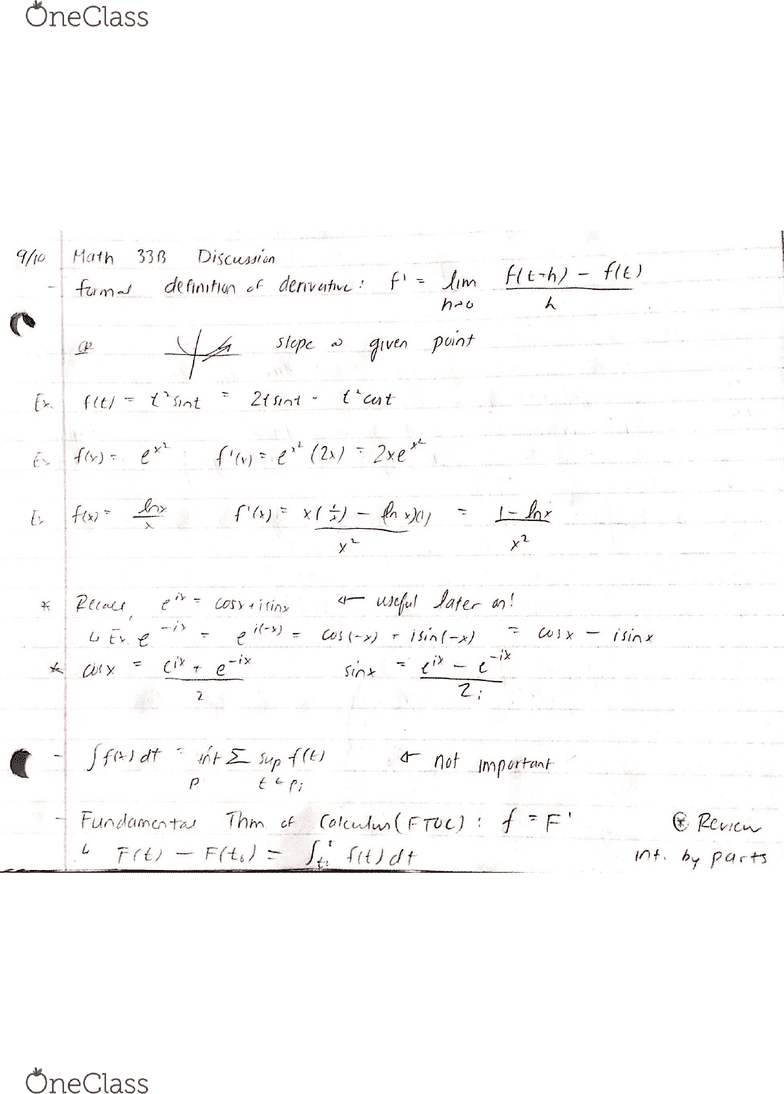 OneClass
9/10 Math 33B Discussion
- formal definition of derivative: f' = lim h→0 (f(t-h) - f(t))/h
slope @ given point
Ex. f(t) = t² sint = 2t sint - t² cost
Ex f(x) = e^x² f'(x) = e^x² (2x) = 2xe^x²
Ex f(x) = lnx/x f'(x) = (x(1/x) - (ln x)(1))/x² = (1 - lnx)/x²
* Recall, e^ix = cosx + i sinx ← useful later on!
↳ Ex. e^-ix = e^i(-x) = cos(-x) + isin(-x) = cosx - isinx
* cosx = (e^ix + e^-ix)/2 sinx = (e^ix - e^-ix)/2i
- ∫f(t) dt = inf P Σ sup t∈Pi f(t) ← not important
- Fundamental Thm of Calculus (FTOC): f = F' * Review
↳ F(t) - F(t₀) = ∫ f(t) dt int. by parts
OneClass